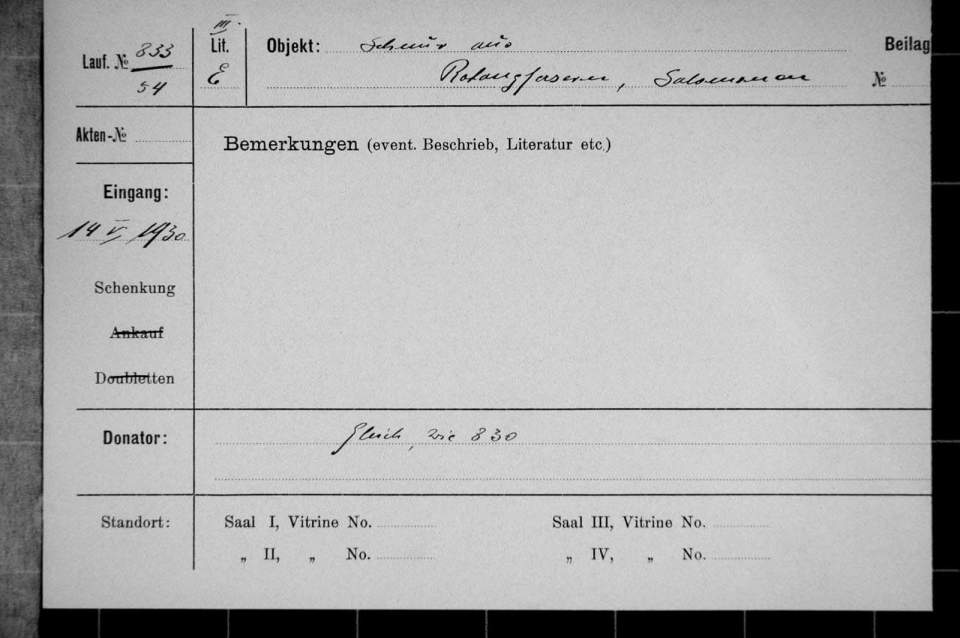 III.
Lauf. № 833
54
Lit.
E
Objekt: Schnur aus
Rotangfasern, Salomonen
Beilag
№
Akten-№
Bemerkungen (event. Beschrieb, Literatur etc.)
Eingang:
14 V. 1930
Schenkung
Ankauf
Doubletten
Donator: Gleich, wie 830
Standort:
Saal I, Vitrine No.
Saal III, Vitrine No.
„ II, „ No.
„ IV, „ No.